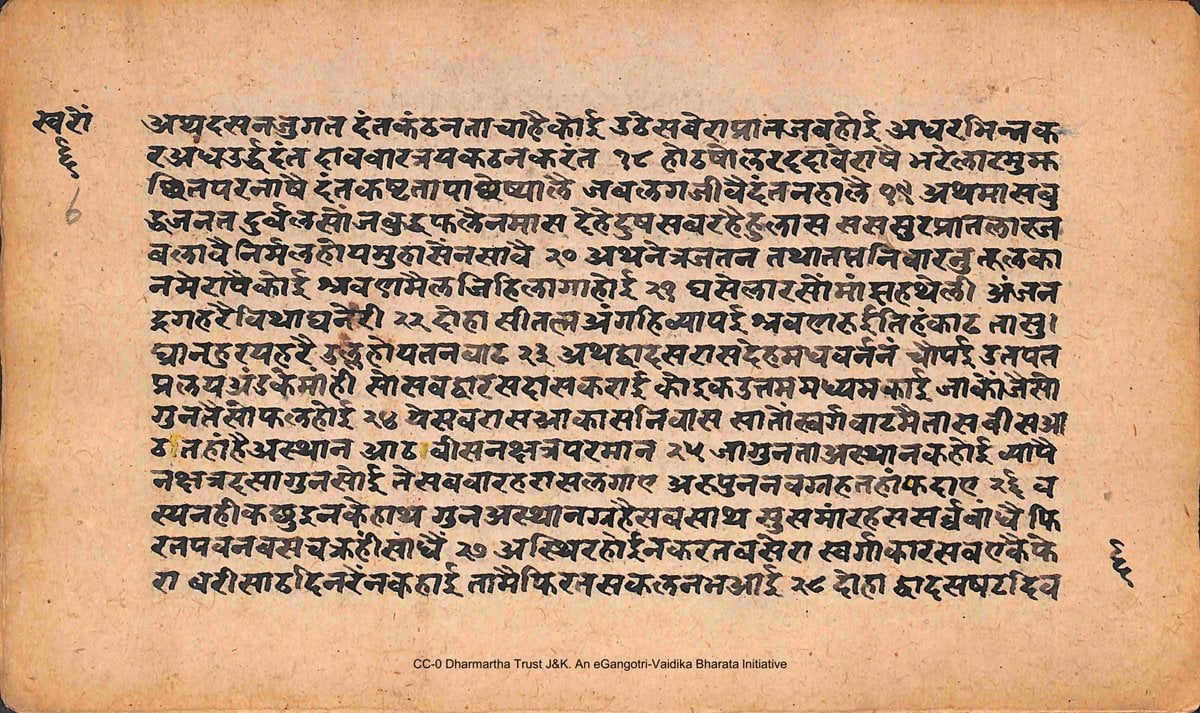 स्वरो
६
6
अथ दसनजुगत दंतकंठनता चाहैकोई उठेसवेराप्रातजवहोई अधरभिन्नक
रअधउर्द्धदंत दाववारत्रयकठनकरंत १८ होठषोलरददावैराषै भरेलारमुष
थितपरनाषै दंतकष्टतापाछैष्यालै जवलगजीवैदंतनहालै १९ अथमासवु
दुर्वल देहेदुषसवरहैहुलास
वलावै निर्मलहोयमुहासैनसावै २० अथनेत्रजतन तथातप्तनिवारनु
नमेराषैकोई श्रवणमैलजिहिलागाहोई २१ घसैलारसोंमांझहथेली अंजन
द्रगहरैविथाघनेरी २२ दोहा सीतलअंगहिव्यापई
२३ अथद्वादसरासदेहमधवर्ननं चौपई उतपत
प्रलयअंडकेमांही सोसवद्वादसरासकराई कोइकउत्तममध्यमकाई जाकोजैसो
गुनतैसोफलहोई २४ येसवरासआकासनिवास सातोंस्वर्गवाटमैतास वीसआ
ठतहांहैअस्थान आठवीसनक्षत्रपरमान २५ जागुनताअस्थानकहोई व्यापै
नक्षत्ररसागुनसोई तेसववारहरासलगाए अरुपुननवग्रहतहांफदाए २६ व
स्यनहीकछुइनकेहाथ गुनअस्थानग्रहैसवसाथ फि
रतपवनवसचक्रहीसाधै २७ अस्थिरहोईनकरतवसेरा स्वर्गाकारसवएकैफे
रा घरीसाठदिनरैनकेहाई तामैफिरतसकलनभआई २८ दोहा द्वादसषटदिव
CC-0 Dharmartha Trust J&K. An eGangotri-Vaidika Bharata Initiative